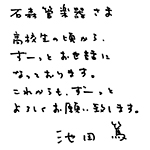 石森管楽器さま
高校生の頃から、
ずーっとお世話に
なっております。
これからも、ずーっと
よろしくお願い致します。
池田 篤